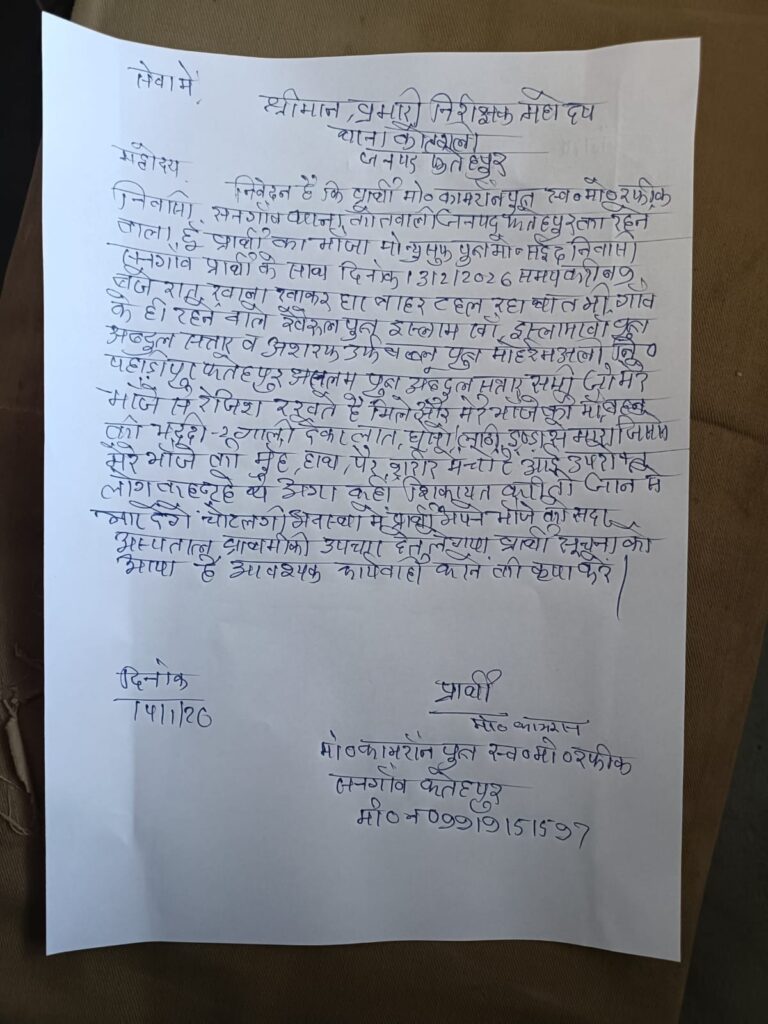 सेवा में,
श्रीमान, प्रभारी निरीक्षक महोदय
थाना कोतवाली
जनपद फतेहपुर
महोदय
निवेदन है कि प्रार्थी मो० कामरान पुत्र स्व० मो० रफीक
निवासी सनगाँव थाना कोतवाली जनपद फतेहपुर का रहने
वाला हूँ प्रार्थी का भांजा मो० युसुफ पुत्र मो० सईद निवासी
सनगाँव प्रार्थी के साथ दिनांक 13/2/2026 समय करीब 9
बजे रात खाना खाकर घर बाहर टहल रहा था तभी गांव
के ही रहने वाले पुत्र इस्लाम खाँ, इस्लाम खाँ पुत्र
अब्दुल सत्तार व अशरफ उर्फ बब्लू पुत्र मोहर्रम अली नि०
पहाड़ीपुर फतेहपुर असलम पुत्र अब्दुल सत्तार सभी जो मेरे
भांजे से रंजिश रखते हैं मिले और मेरे भांजे को माँ बहन
की भद्दी-२ गाली देकर लात, घूसो, लाठी, डण्डा से मारा जिससे
मेरे भांजे को मुँह, हाथ, पैर, शरीर में चोटें आई उपरोक्त
लोग कह रहे थे अगर कही शिकायत करी तो जान से
मार देंगे चोट लगी अवस्था में प्रार्थी अपने भांजे को सदर
अस्पताल प्राथमिकी उपचार हेतु ले गया प्रार्थी सूचना को
आया है आवश्यक कार्यवाही करने की कृपा करें।
दिनांक
प्रार्थी
मो० कामरान
मो० कामरान पुत्र स्व० मो० रफीक
सनगाँव फतेहपुर
मो० न० 9919151597